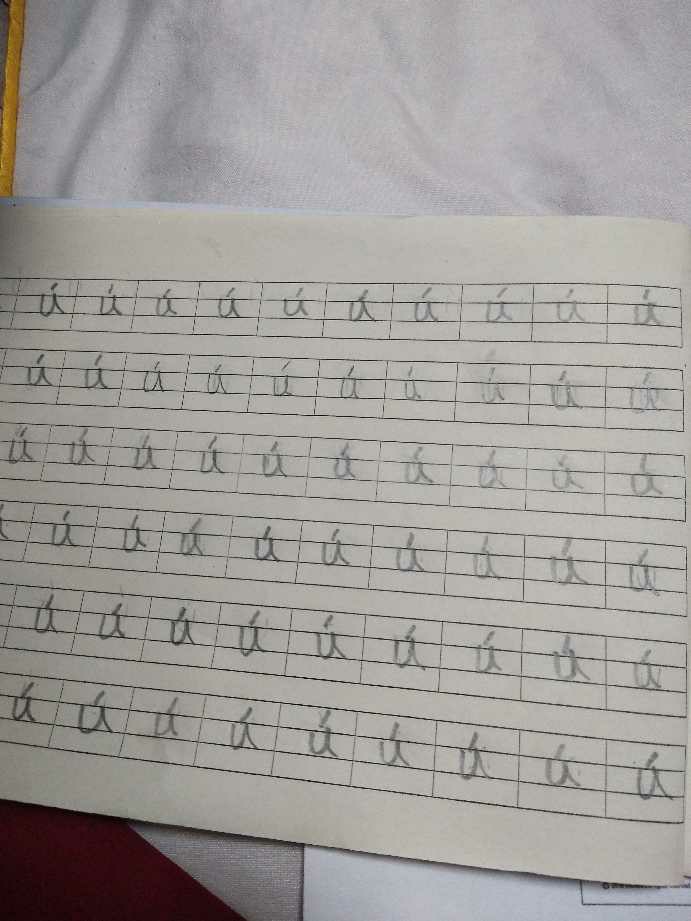 ú ú ú ú ú ú ú ú ú ú
ú ú ú ú ú ú ú ú ú ú
ú ú ú ú ú ú ú ú ú ú
ú ú ú ú ú ú ú ú ú
ú ú ú ú ú ú ú ú ú
ú ú ú ú ú ú ú ú ú